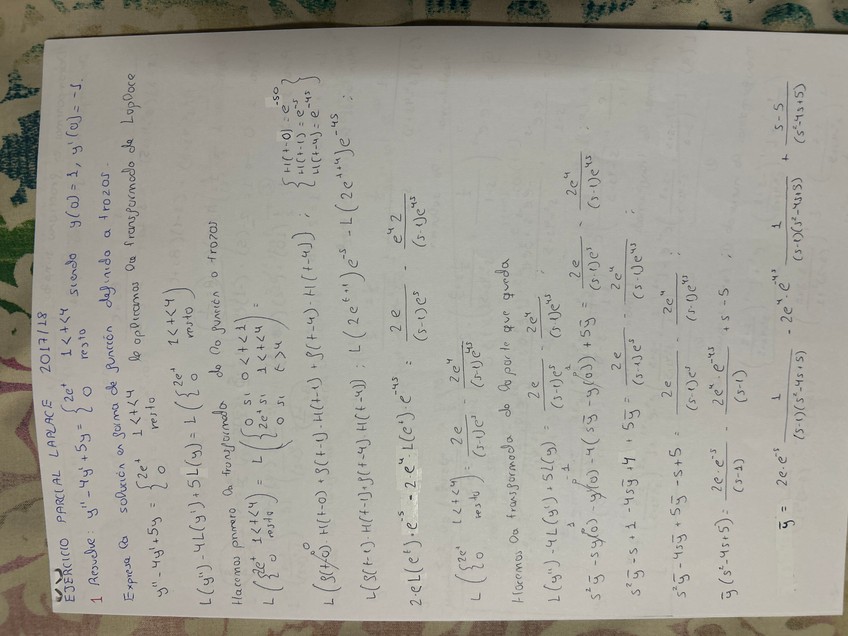 EJERCICIO PARCIAL LAPLACE 2017/18
1 Resuelve: y'' - 4y' + 5y = { 2e^t 1<t<4 0 resto siendo y(0) = 1, y'(0) = -1.
Expresa la solución en forma de función definida a trozos.
y'' - 4y' + 5y = { 2e^t 1<t<4 0 resto le aplicamos la transformada de Laplace
L(y'') - 4L(y') + 5L(y) = L({ 2e^t 1<t<4 0 resto )
Hacemos primero la transformada de la función a trozos
L({ 2e^t 1<t<4 0 resto ) = L({ 0 si 0<t<1 2e^t si 1<t<4 0 si t>4 ) =
L(f(t-0)·H(t-0) + f(t-1)·H(t-1) + f(t-4)·H(t-4)) ; { H(t-0) = e^-s0 H(t-1) = e^-s H(t-4) = e^-4s }
L(f(t-1)·H(t-1) + f(t-4)·H(t-4)) = L(2e^t+1)e^-s - L(2e^t+4)e^-4s ;
2·e L(e^t)·e^-s - 2·e^4·L(e^t)·e^-4s = 2e/(s-1)e^s - e^4 2/(s-1)e^4s
L({ 2e^t 1<t<4 0 resto ) = 2e/(s-1)e^s - 2e^4/(s-1)e^4s
Hacemos la transformada de la parte que queda
L(y'') - 4L(y') + 5L(y) = 2e/(s-1)e^s - 2e^4/(s-1)e^4s ;
s²ȳ - sy(0) - y'(0) - 4(sȳ - y(0)) + 5ȳ = 2e/(s-1)e^s - 2e^4/(s-1)e^4s ;
s²ȳ - s + 1 - 4sȳ + 4 + 5ȳ = 2e/(s-1)e^s - 2e^4/(s-1)e^4s ;
s²ȳ - 4sȳ + 5ȳ - s + 5 = 2e/(s-1)e^s - 2e^4/(s-1)e^4s ;
ȳ(s² - 4s + 5) = 2e·e^-s/(s-1) - 2e^4·e^-4s/(s-1) + s - 5 ;
ȳ = 2e·e^-s 1/(s-1)(s²-4s+5) - 2e^4·e^-4s 1/(s-1)(s²-4s+5) + s-5/(s²-4s+5)